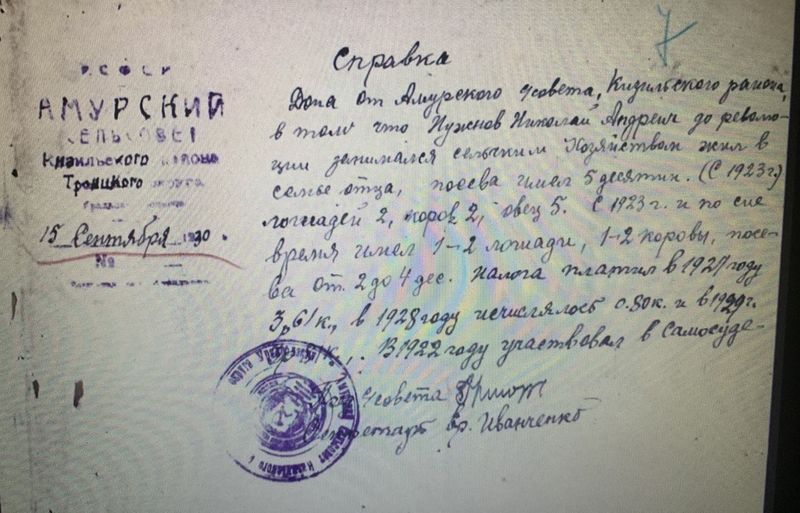 7
РСФСР
АМУРСКИЙ
СЕЛЬСОВЕТ
Кизильского района
Троицкого округа
15 Сентября 1930
№
Справка
Дона от Амурского с/совета, Кизильского района,
в том что Нужнов Николай Андреич до револю-
ции занимался сельским Хозяйством жил в
семье отца, посева имел 5 десятин. (С 1923 г.)
лошадей 2, коров 2, овец 5. С 1923 г. и по сие
время имел 1-2 лошади, 1-2 коровы, посе-
ва от 2 до 4 дес. налога платил в 1927 году
3р 61к, в 1928 году исчислялось 0.80к. и в 1929 г.
В 1922 году участвовал в Самосуде-
с/совета
Секретарь вр. Иванченко